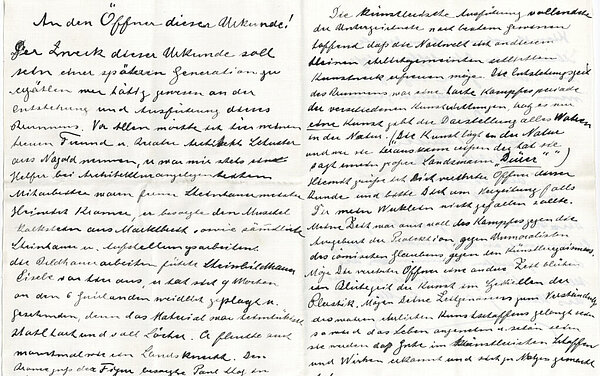 An den Öffner dieser Urkunde!
Der Zweck dieser Urkunde soll
sein einer späteren Generation zu
erzählen wer tätig gewesen an der
Entstehung und Ausführung dieses
Brunnens. Vor Allem möchte ich hier meinen
treuen Freund u. Berater Architekt
aus Nagold nennen, u war mir stets ein
Helfer bei Architekturangelegenheiten
Mitarbeiter waren ferner Steinhauermeister
Heinrich Kramer, er besorgte den Muschel
kalkstein aus Marktbreit sowie sämtliche
Steinhauer u. Aufstellungsarbeiten.
die Bildhauerarbeiten führte Steinbildhauer
Eisele aus, er hat sich 9 Wochen
an den 6 weidlich geplagt u.
geschunden, denn das Material war
stahlhart und voll Löcher. Er fluchte auch
manchmal wie ein Landsknecht. Den
Bronzeguss der Figur besorgte Paul
Die künstlerische Ausführung vollendete
der Unterzeichnete nach bestem Gewissen
hoffend daß die Nachwelt sich an diesem
kleinen selbstgemeinten
Kunstwerk erfreuen möge. Die Entstehungszeit
des Brunnens war eine harte Kampfesperiode
der verschiedenen Kunstrichtungen, wo es nur
eine Kunst gibt der Darstellung alles Wahren
in der Natur. (Die Kunst liegt in der Natur
und wer sie heraus kann reißen der hat sie
sagt unser großer Landsmann "Dürer")
Hiermit grüße ich Dich verehrter Öffner dieser
Kunde und bitte Dich um Verzeihung falls
Dir mein Werklein nicht gefallen sollte.
Meine Zeit war auch voll des Kampfes gegen die
der Protektion gegen
des Glaubens gegen den
Möge Dir verehrter Öffner eine andere Zeit blühen
ein Blütezeit der Kunst im der
Plastik. Mögen Deine Zeitgenossen zum Verständnis
des wahren ehrlichen Kunstschaffens gelangt sein
so wird das Leben angenehm u schön sein
sie werden das Gute im künstlerischen Schaffen
und Wirken erkannt und sich zu Nutzen gemacht